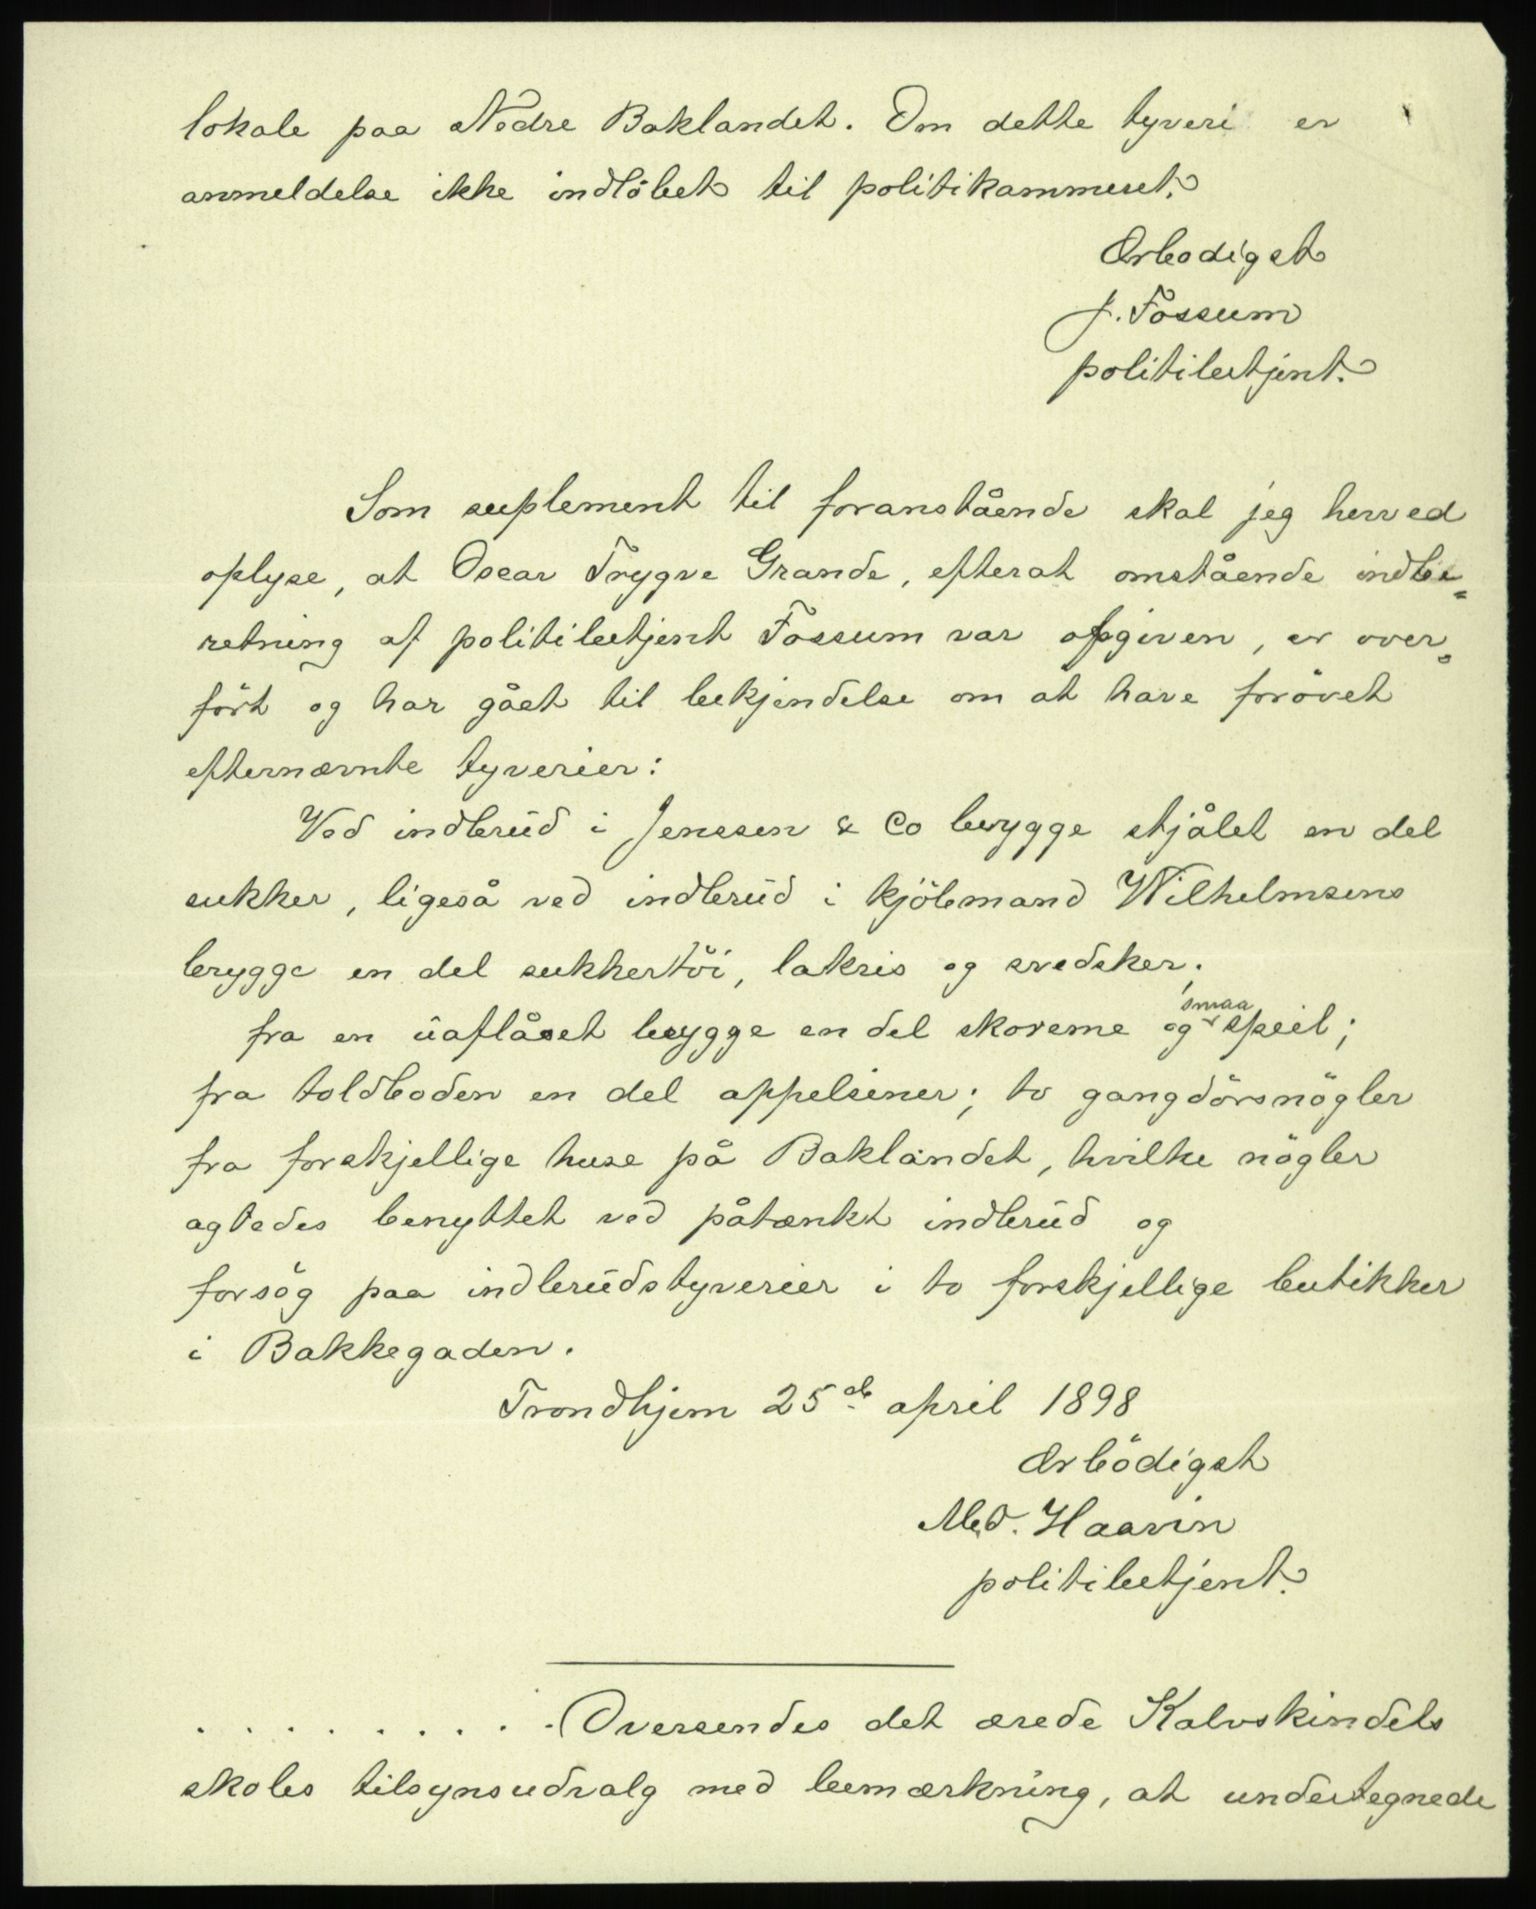 lokale paa Nedre Baklandet. Om dette tyveri er
anmeldelse ikke indlöbet til politikammeret.
Ærbodigst
J. Fossum
politibetjent.
Som suplement til foranstående skal jeg herved
oplyse, at Oscar Trygve Grande, efterat omstående indbe-
retning af politibetjent Fossum var afgiven, er over-
fört og har gået til bekjendelse om at have forövet
efternævnte tyverier:
Ved indbrud i Jenssen & Co brygge stjålet en del
sukker, ligeså ved indbrud i kjöbmand Wilhelmsens
brygge en del sukkertöi, lakris og svedsker.
fra en uaflåset brygge en del skoreme og smaa speil;
fra toldboden en del appelsiner; to gangdörsnögler
fra forskjellige huse på Baklandet, hvilke nögler
agtedes benyttet ved påtænkt indbrud og
forsög paa indbrudstyverier i to forskjellige butikker
i Bakkegaden.
Trondhjem 25de april 1898
Ærbödigst
M. Haavin
politibetjent.
. . . . . . . . . Oversendes det ærede Kalvskindets
skoles tilsynsudvalg med bemærkning, at undertegnede